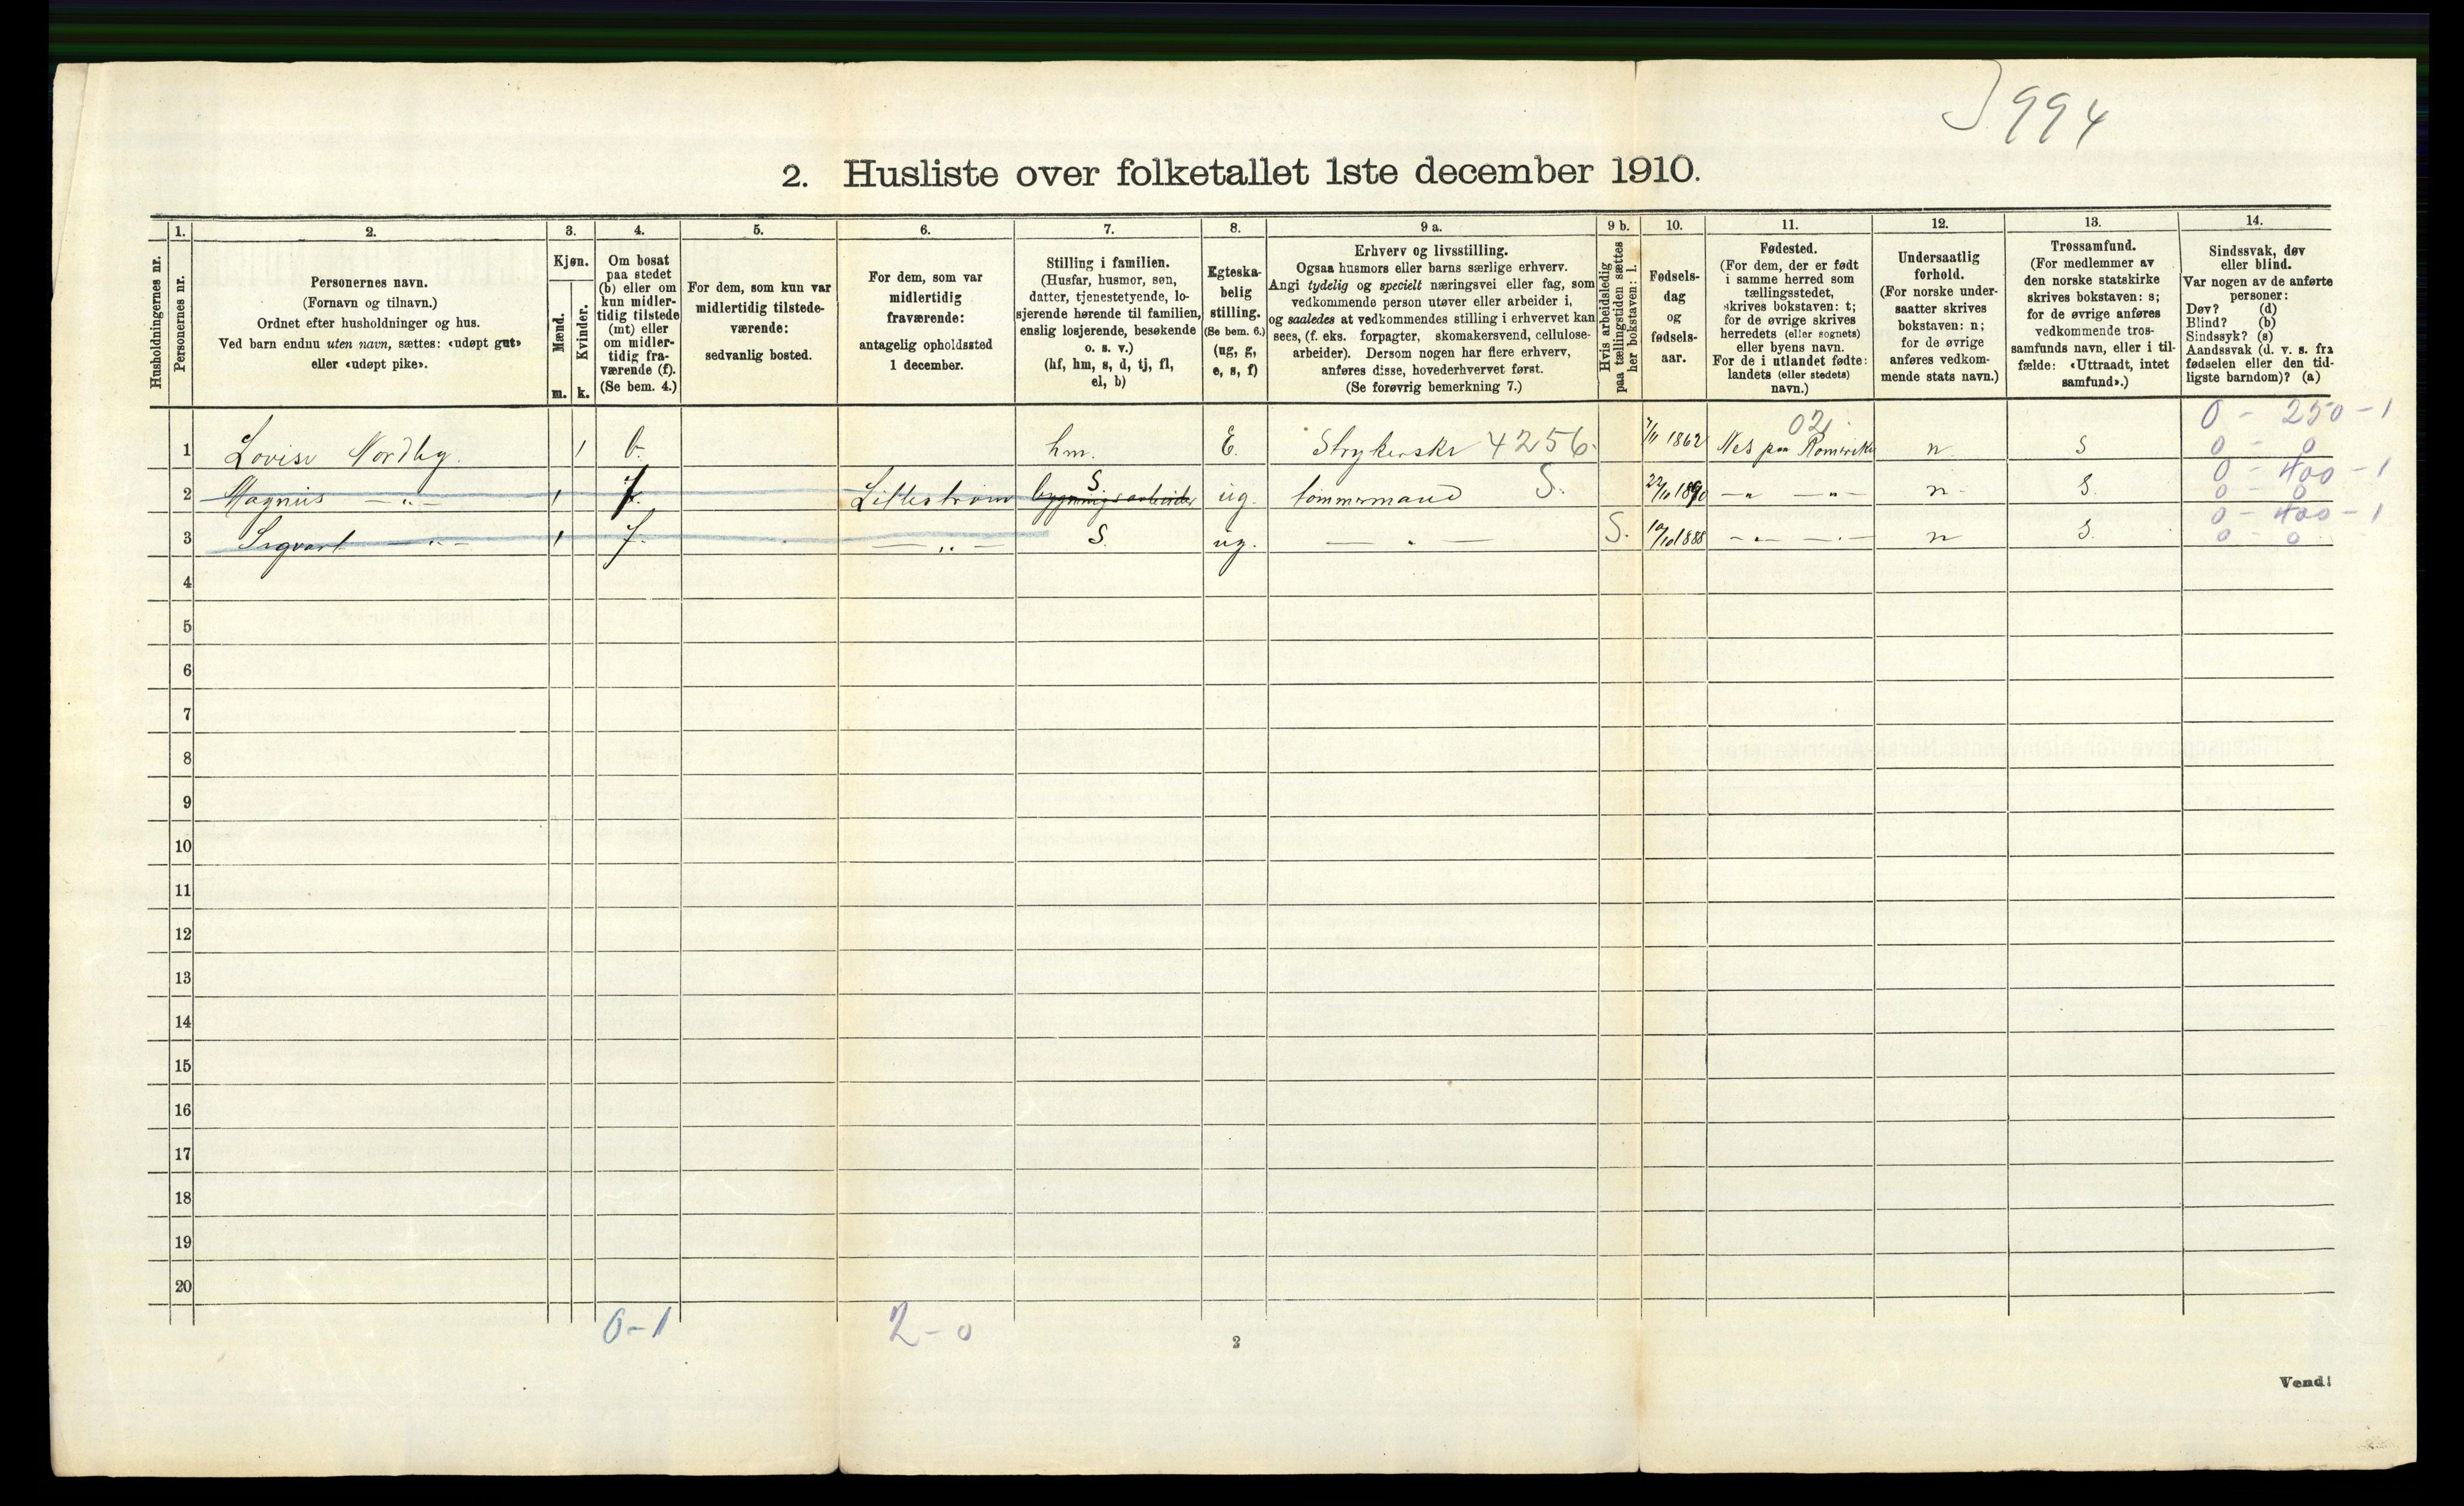 994
2. Husliste over folketallet 1ste december 1910.
Husholdningernes nr.
1.
Personernes nr.
2.
Personernes navn.
(Fornavn og tilnavn.)
Ordnet efter husholdninger og hus.
Ved barn endnu uten navn, sættes: «udøpt gut»
eller «udøpt pike».
3.
Kjøn.
Mænd.
Kvinder.
m. k.
4.
Om bosat
paa stedet
(b) eller om
kun midler-
tidig tilstede
(mt) eller
om midler-
tidig fra-
værende (f).
(Se bem. 4.)
5.
For dem, som kun var
midlertidig tilstede-
værende:
sedvanlig bosted.
6.
For dem, som var
midlertidig
fraværende:
antagelig opholdssted
1 december.
7.
Stilling i familien.
(Husfar, husmor, søn,
datter, tjenestetyende, lo-
sjerende hørende til familien,
enslig losjerende, besøkende
o. s. v.)
(hf, hm, s, d, tj, fl,
el, b)
8.
Egteska-
belig
stilling.
(Se bem. 6.)
(ug, g,
e, s, f)
9 a.
Erhverv og livsstilling.
Ogsaa husmors eller barns særlige erhverv.
Angi tydelig og specielt næringsvei eller fag, som
vedkommende person utøver eller arbeider i,
og saaledes at vedkommendes stilling i erhvervet kan
sees, (f. eks. forpagter, skomakersvend, cellulose-
arbeider). Dersom nogen har flere erhverv,
anføres disse, hovederhvervet først.
(Se forøvrig bemerkning 7.)
9 b.
Hvis arbeidsledig
paa tællingstiden sættes
her bokstaven: l.
10.
Fødsels-
dag
og
fødsels-
aar.
11.
Fødested.
(For dem, der er født
i samme herred som
tællingsstedet,
skrives bokstaven: t;
for de øvrige skrives
herredets (eller sognets)
eller byens navn.
For de i utlandet fødte:
landets (eller stedets)
navn.)
12.
Undersaatlig
forhold.
(For norske under-
saatter skrives
bokstaven: n;
for de øvrige
anføres vedkom-
mende stats navn.)
13.
Trossamfund.
(For medlemmer av
den norske statskirke
skrives bokstaven: s;
for de øvrige anføres
vedkommende tros-
samfunds navn, eller i til-
fælde: «Uttraadt, intet
samfund».)
14.
Sindssvak, døv
eller blind.
Var nogen av de anførte
personer:
Døv? (d)
Blind? (b)
Sindssyk? (s)
Aandssvak (d. v. s. fra
fødselen eller den tid-
ligste barndom)? (a)
02. 0 - 250 - 1
1 Lovise Nordby. 1 b. hm. E. Strykerske 4256. 7/11 1862 Nes paa Romerike n. S 0 - 0
S 0 - 400 - 1
2 Magnus -"- 1 f. Lillestrøm bygningsarbeider ug. tømmermand S. 22/11 1890 -"- -"- n. S. 0 - 0
0 - 400 - 1
3 Sigvart -"- 1 f. -"- S. ug. -"- S. 10/10 1888 -"- -"- n S. 0 - 0
4
5
6
7
8
9
10
11
12
13
14
15
16
17
18
19
20
0-1 2-0
2
Vend!